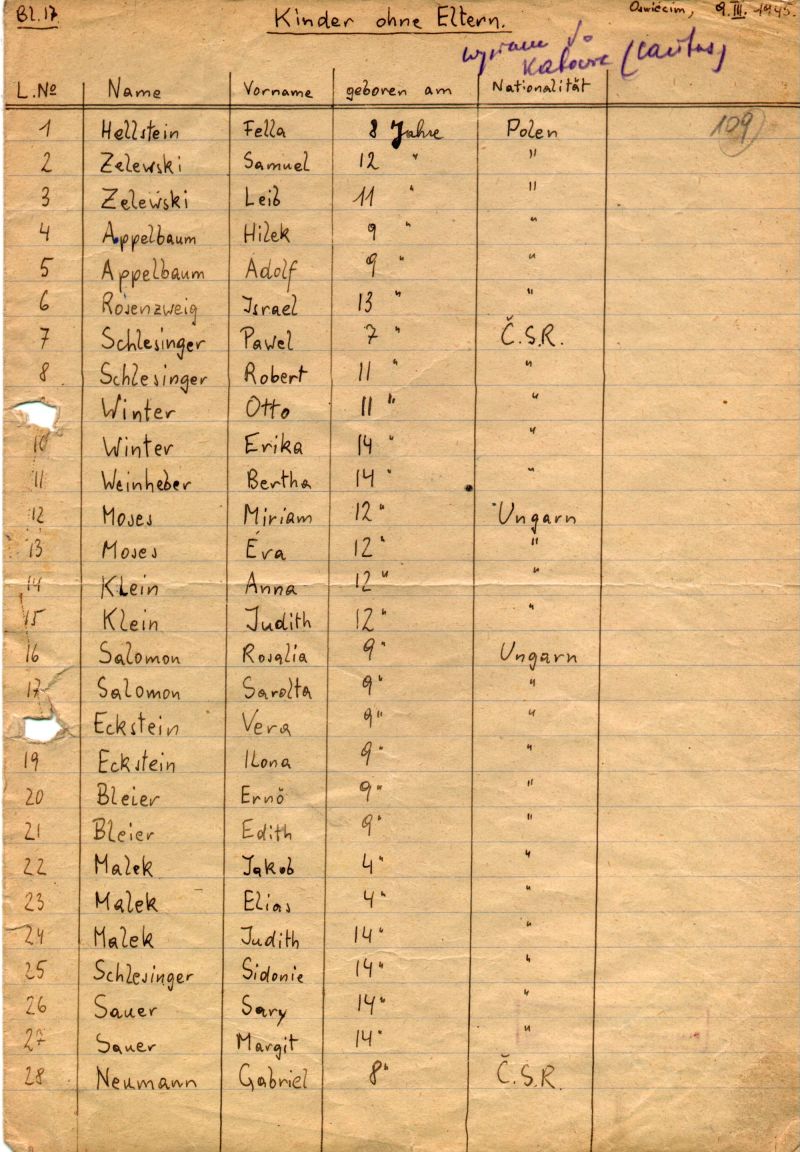 Bl. 17
Oswiecim, 9. III. 1945.
Kinder ohne Eltern.
Katowic (Caritas)
L.No Name Vorname geboren am Nationalität
109
1 Hellstein Fella 8 Jahre Polen
2 Zelewski Samuel 12 " "
3 Zelewski Leib 11 " "
4 Appelbaum Hilek 9 " "
5 Appelbaum Adolf 9 " "
6 Rosenzweig Israel 13 " "
7 Schlesinger Pawel 7 " Č.S.R.
8 Schlesinger Robert 11 " "
Winter Otto 11 " "
10 Winter Erika 14 " "
11 Weinheber Bertha 14 " "
12 Moses Miriam 12 " Ungarn
13 Moses Éva 12 " "
14 Klein Anna 12 " "
15 Klein Judith 12 " "
16 Salomon Rosalia 9 " Ungarn
17 Salomon Sarolta 9 " "
Eckstein Vera 9 " "
19 Eckstein Ilona 9 " "
20 Bleier Ernő 9 " "
21 Bleier Edith 9 " "
22 Malek Jakob 4 " "
23 Malek Elias 4 " "
24 Malek Judith 14 " "
25 Schlesinger Sidonie 14 " "
26 Sauer Sary 14 " "
27 Sauer Margit 14 " "
28 Neumann Gabriel 8 " Č.S.R.